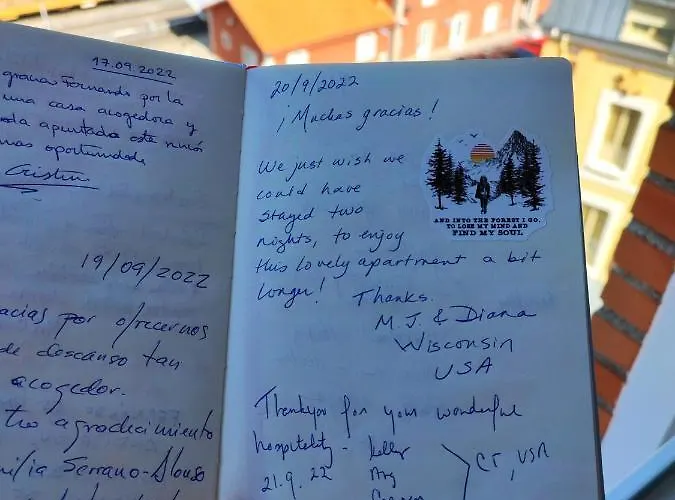 17.09.2022
gracias Fernando por la
una casa acogedora y
oportunidade
Cristina
19/09/2022
acias por ofrecernos
de descanso tan
acogedor.
tro agradecimiento
ilia Serrano-Alonso
20/9/2022
¡Muchas gracias!
We just wish we
could have
stayed two
nights, to enjoy
this lovely apartment a bit
longer! Thanks.
M.J. & Diana
Wisconsin
USA
AND INTO THE FOREST I GO,
TO LOSE MY MIND AND
FIND MY SOUL
Thankyou for your wonderful
hospitality - Kelly
21.9.22
CT, USA